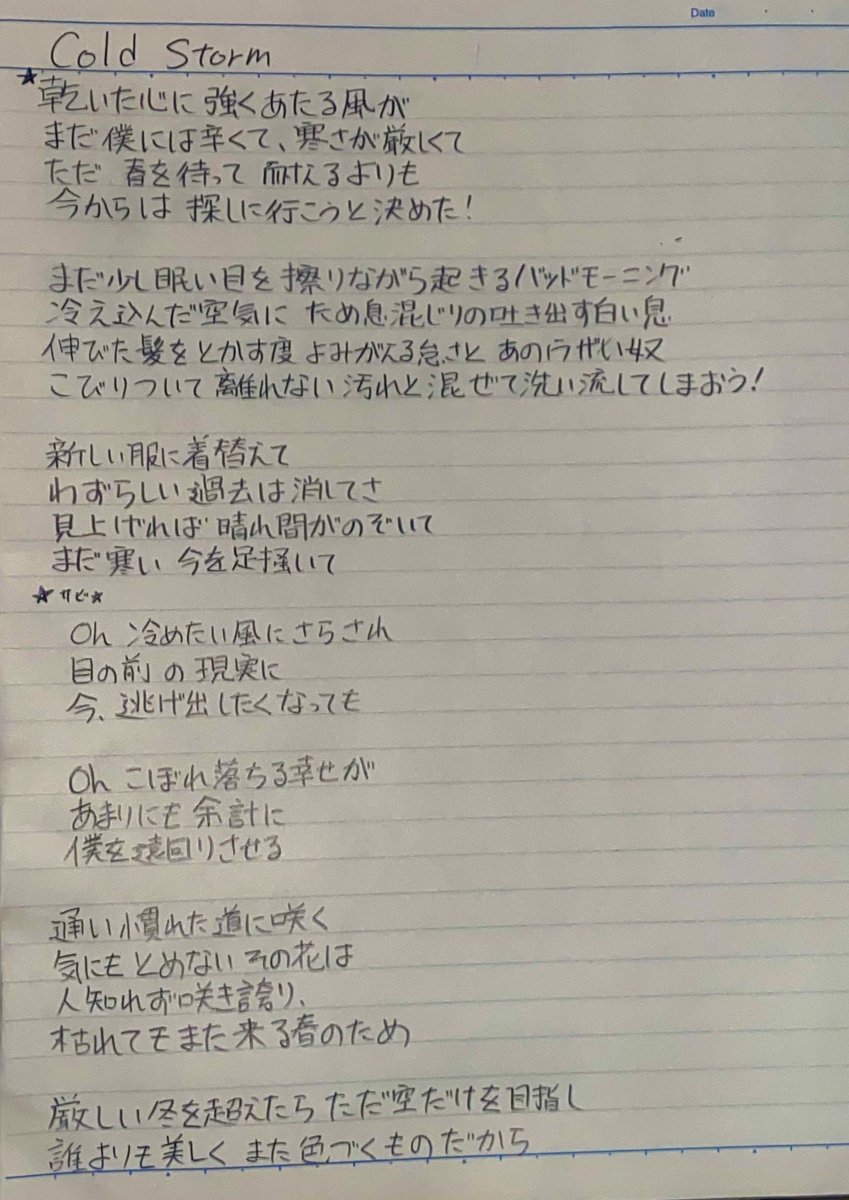 Date
Cold Storm
★乾いた心に 強くあたる風が
まだ僕には辛くて、寒さが厳しくて
ただ 春を待って 耐えるよりも
今からは 探しに行こうと決めた!
まだ少し眠い目を擦りながら起きるバッドモーニング
冷え込んだ空気に ため息混じりの吐き出す白い息
伸びた髪をとかす度 よみがえる怠さと あのうざい奴
こびりついて離れない汚れと混ぜて洗い流してしまおう!
新しい服に着替えて
わずらしい過去は消してさ
見上げれば 晴れ間がのぞいて
まだ寒い 今を足掻いて
★サビ★
Oh 冷めたい風にさらされ
目の前の現実に
今、逃げ出したくなっても
Oh こぼれ落ちる幸せが
あまりにも余計に
僕を遠回りさせる
通い慣れた道に咲く
気にもとめないその花は
人知れず咲き誇り、
枯れてもまた来る春のため
厳しい冬を超えたら ただ空だけを目指し
誰よりも美しく また色づくものだから